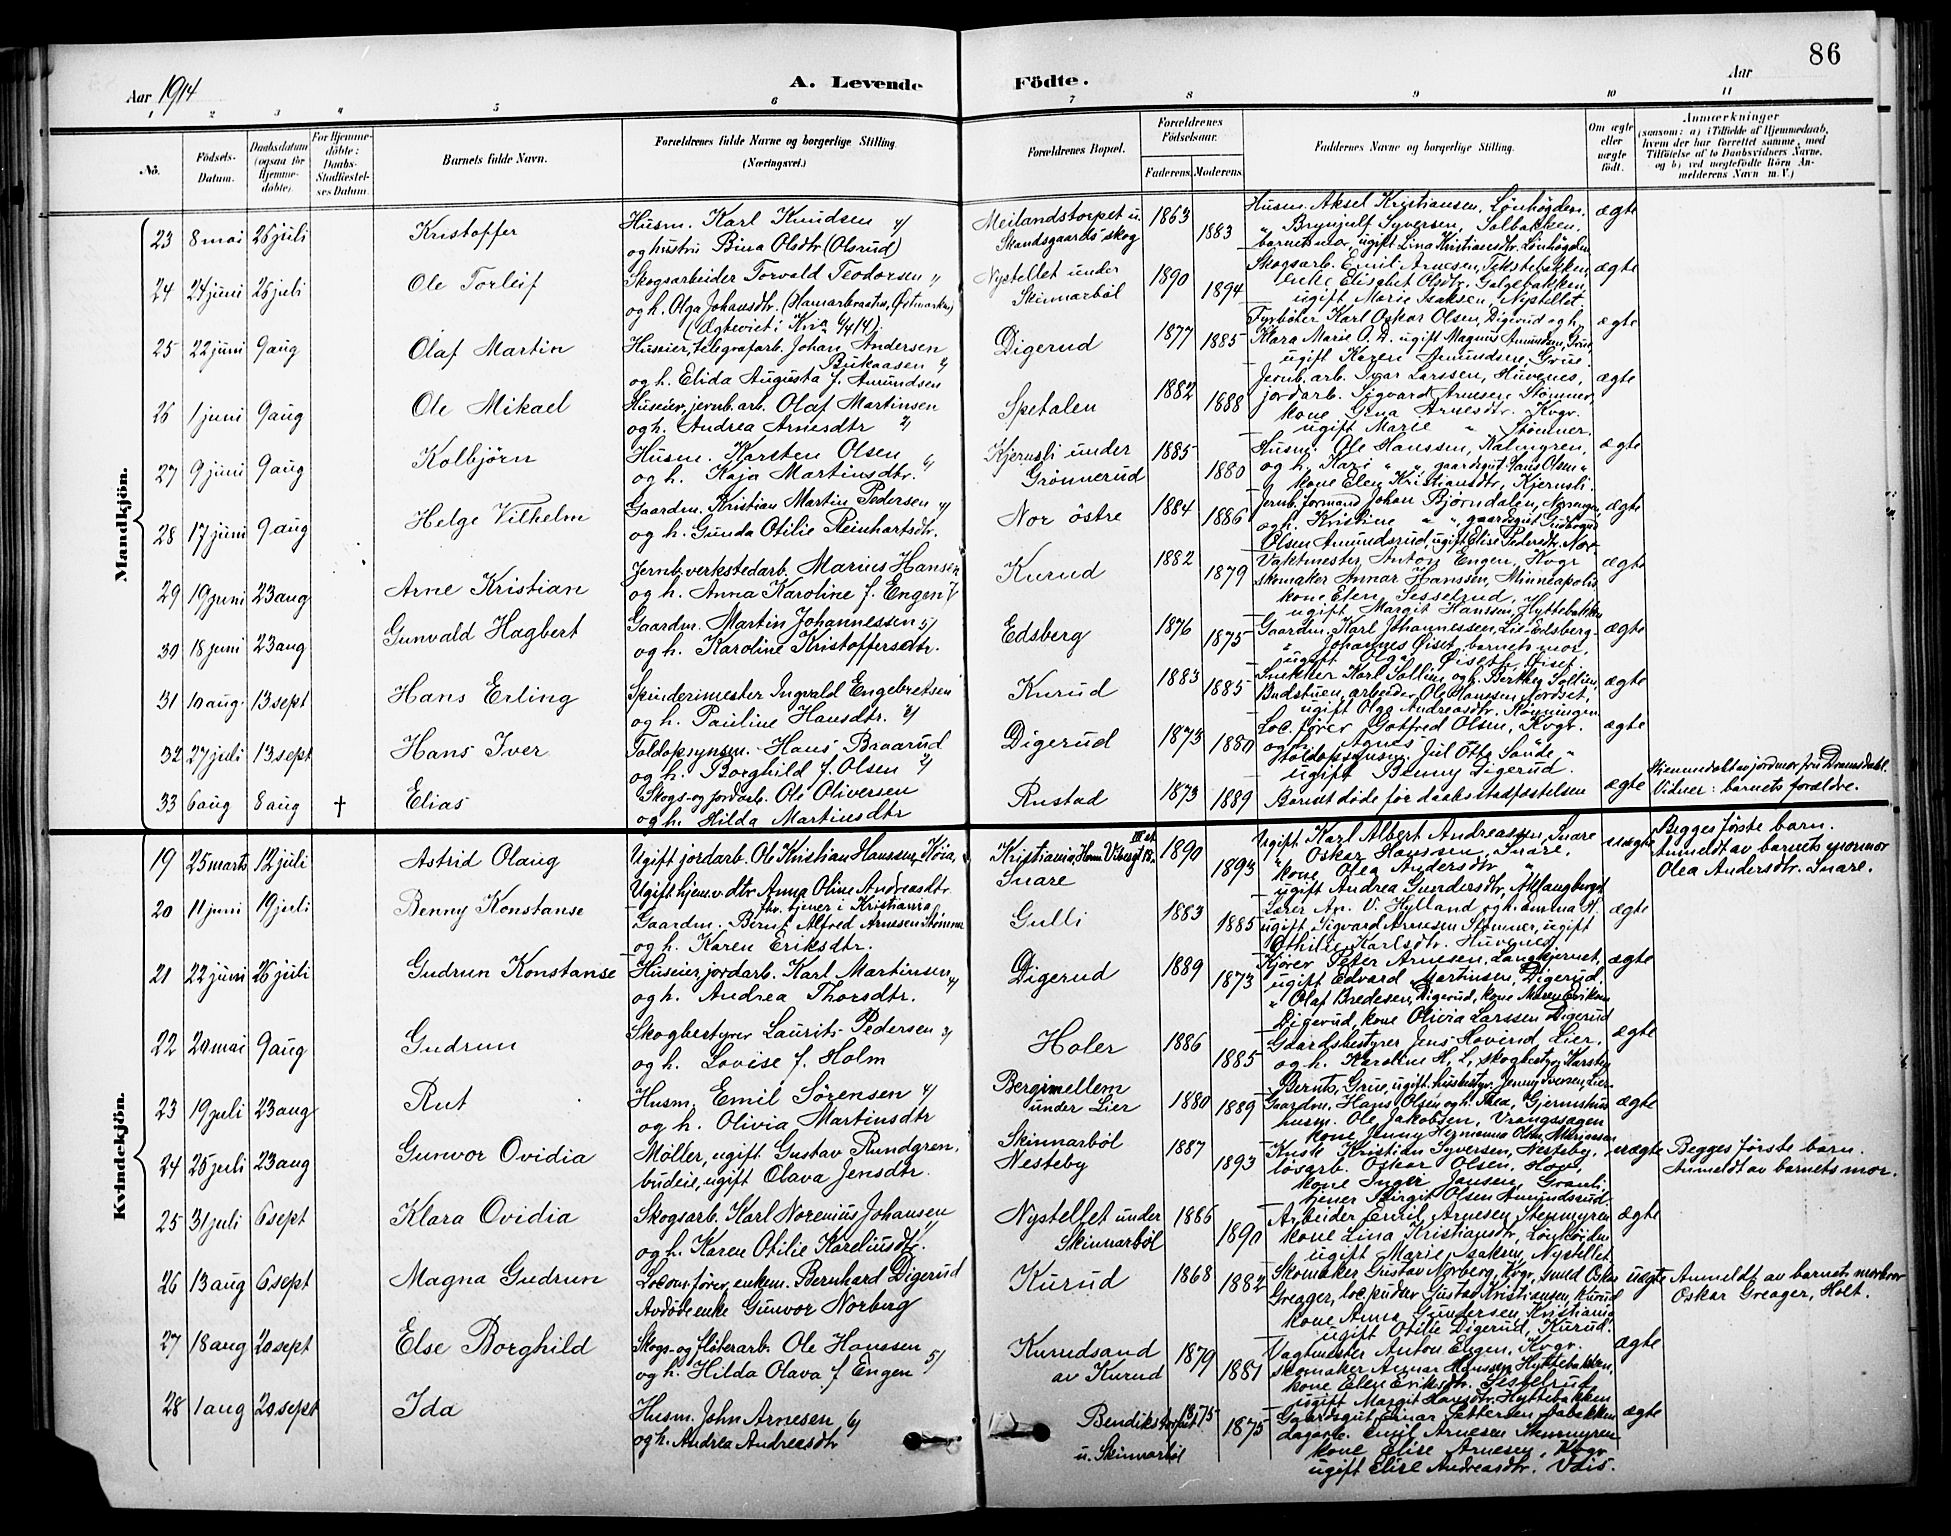 86
Aar 1914
A. Levende Födte.
Aar
1 2 3 4 5 6 7 8 9 10 11
No.
Födsels-Datum.
Daabsdatum (ogsaa for Hjemmedöbte).
For Hjemmedöbte: Daabs-Stadfæstelses Datum.
Barnets fulde Navn.
Forældrenes fulde Navne og borgerlige Stilling (Næringsvei.)
Forældrenes Bopæl.
Forældrenes Födselsaar.
Faderens. Moderens.
Faddernes Navne og borgerlige Stilling.
Om ægte eller uægte födt.
Anmærkninger
(saasom: a) i Tilfælde af Hjemmedaab, hvem der har forrettet samme, med Tilföielse af to Daabsvidners Navne, og b) ved uegtefödte Börn Anmelderens Navn m. V.)
Mandkjön.
23 8 mai 26 juli Kristoffer
Husm. Karl Knudsen
og hustru Bina Olsdtr (Olsrud)
Meilandstorpet u. Skandsgaards skog 1863 1883
Husm. Aksel Kristiansen, Lönhögden.
" Brynjulf Syversen, Solbakken.
barnets mor, ugift Lina Kristiansdtr. Lönhögden
ægte
24 24 juni 26 juli Ole Torleif
Skogsarbeider Torvald Teodorsen
og h. Olga Johansdtr. (Hamarbraaten, Østmarken)
Ægteviet i Kra 4/4 14).
Nystellet under Skinnarböl 1890 1894
Skogsarb. Emil Arnesen, Tekstebakken,
enke Elisabet Olsdtr, Galgebakken,
ugift Marie Isaksen, Nystellet.
ægte
25 22 juni 9 aug Olaf Martin
Huseier, telegrafarb. Johan Andersen Bukaasen
og h. Elida Augusta f. Amundsen
Digerud 1877 1885
Fyrböter Karl Oskar Olsen, Digerud og h.
Klara Marie O. D. ugift Magnus Amundsen, Grue,
ugift Karen Amundsen, Grue
ægte
26 1 juni 9 aug Ole Mikael
Huseier, jernb. arb. Olaf Martinsen
og h. Andrea Arnesdtr
Spetalen 1882 1888
Jernb. arb. Ivar Larssen, Huvenes,
jordarb. Sigvard Arnesen Stömner,
kone Gina Arnesdtr. Kvgr.
ugift Marie " Stömner.
ægte
27 9 juni 9 aug Kolbjörn
Husm. Karsten Olsen
og h. Kaja Martinsdtr.
Kjernsli under Grönnerud 1885 1880
Husm. Ole Hanssen, Kalmyren,
og h. Kari " ", gaardsgut Hans Olsen "
kone Elen Kristiansdtr, Kjernsli.
ægte
28 17 juni 9 aug Helge Vilhelm
Gaardm. Kristian Martin Pedersen
og h. Gunda Otilie Reinhartsdtr.
Nor östre 1884 1886
Jernb. formand Johan Björndalen,
og h. Kristine " ", gaardsgut Gudbrand
Olsen Amundsrud, ugift Elise Pedersdtr. Nor
ægte
29 19 juni 23 aug Arne Kristian
Jernb. verkstedarb. Marius Hansen
og h. Anna Karoline f. Engen
Kurud 1882 1879
Vaktmester Anton Engen, Kvgr
skomaker Annar Hanssen, Minneapolis
kone Elen Sesselrud,
ugift Margit Hanssen, Hyttebakken
ægte
30 18 juni 23 aug Gunvald Hagbert
Gaardm. Martin Johannessen
og h. Karoline Kristoffersdtr.
Edsberg 1876 1875
Gaardm. Karl Johannessen, Lie-Edsberg
" Johannes Öiset, barnets mor,
ugift Olga Öiset, Öiset.
ægte
31 10 aug. 13 sept Hans Erling
Spinderimester Ingvald Engebretsen
og h. Pauline Hansdtr.
Kurud 1883 1885
Snekker Karl Sollien og h. Berthe Sollien,
Budstuen, arbeider Ole Hanssen Nordset,
ugift Olga Andreasdtr. Mönningen
ægte
32 27 juli 13 sept Hans Iver
Toldopsynsm. Hans Braarud
og h. Borghild f. Olsen
Digerud 1873 1880
Loc. förer Gotfred Olsen, Kvgr.
og h. Agnes "
toldopsynsm. Jul Otto Sande "
ugift Benny Digerud.
ægte
33 6 aug 8 aug † Elias
Skogs- og jordarb. Ole Oliversen
og h. Hilda Martinsdtr
Rustad 1873 1889
Barnet döde för daabsstadfæstelsen
ægte
Hjemmedöbt av jordmor fru Dramsdahl.
Vidner: barnets forældre.
Kvindekjön.
19 25 marts 12 juli Astrid Olaug
Ugift jordarb. Ole Kristian Hanssen Höia,
Ugift hjemv. dtr Anna Oline Andreasdtr.
fhv. tjener i Kristiania
Kristiania, Snare 1890 1893
Ugift Karl Albert Andreassen, Snare
" Oskar Hanssen, Snare,
kone Olea Andersdtr. "
ugift Andrea Gundersdtr,
uægte
Begges förste barn.
Anmeldt av barnets mormor
Olea Andersdtr. Snare.
20 11 juni 19 juli Benny Konstanse
Gaardm. Bernt Alfred Arnesen Stömner
og h. Karen Eriksdtr.
Gulli 1883 1885
Lærer An. V. Hylland og h. Emma H.
ugift Sigvard Arnesen Stömner, ugift
Othilie Karlsdtr. Huvenes
ægte
21 22 juni 26 juli Gudrun Konstanse
Huseier, jordarb. Karl Martinsen
og h. Andrea Thorsdtr.
Digerud 1889 1873
Kjörer Peter Arnesen, Langkjernet,
ugift Edvard Martinsen, Digerud,
" Olaf Bredesen, Digerud, kone Maren Eriksen
Digerud, kone Olivia Larssen Digerud
ægte
22 20 mai 9 aug Gudrun
Skogbestyrer Laurits Pedersen
og h. Lovise f. Holm
Holer 1886 1885
Gaardsbestyrer Jens Hoverud, Lier,
og h. Karoline H. L, skogbestyr. Karsten
Bernts, Grue, ugift husbestyr. Jenny Iversen, Lier
ægte
23 19 juli 23 aug Rut
Husm. Emil Sörensen
og h. Olivia Martinsdtr
Bergimellem under Lier 1880 1889
Gaardm. Hans Olsen og h. Thea, Gjermshus
husm. Ole Jakobsen, Vrangasagen
kone Jenny Hermanna
ægte
24 25 juli 23 aug Gunvor Ovidia
Möller, ugift Gustav Rundgren,
budeie, ugift Olava Jensdtr.
Skinnarböl
Nesteby 1887 1893
Kusk Kristian Syversen, Nesteby.
lösarb. Oskar Olsen, Hove,
kone Inger Jansen, Granli,
tjener Birgit Olsen Amundsrud
uægte
Begges förste barn.
Anmeldt av barnets mor.
25 31 juli 6 sept Klara Ovidia
Skogsarb. Karl Norenius Johansen
og h. Karen Otilie Kareliusdtr.
Nystellet under Skinnarböl 1886 1890
Arbeider Emil Arnesen, Stenmyren
kone Lina Kristiansdtr, Lönhöiden
ugift Marie Isaksen, Nystellet
ægte
26 13 aug 6 sept Magna Gudrun
Locom. förer, enkem. Bernhard Digerud
Avdöde enke Gunvor Norberg
Kurud 1868 1882
Skomaker Gustav Norberg, Kvgr, smed Oskar
Greager, loc. pudser Gustav Kristiansen, Kurud
kone Anna Gundersen, Kristiania
ugift Otilie Digerud, Kurud.
uægte
Anmeldt av barnets morbror
Oskar Greager, Holt.
27 18 aug 20 sept Else Borghild
Skogs- og flöterarb. Ole Hanssen
og h. Hilda Olava f. Engen
Kurudsand av Kurud 1879 1881
Vagtmester Anton Engen, Kvgr.
skomaker Annar Hanssen, Hyttebakken,
kone Elen Eriksdtr. Sesselrud,
ugift Margit Hansdtr. Hyttebakken
ægte
28 1 aug 20 sept Ida
Husm. John Arnesen
og h. Andrea Andreasdtr
Bendikstorpet u. Skinnarböl 1875 1875
Gaardsgut Einar Pettersen Aabakken
dagarb. Emil Arnesen Stenmyren
kone Elise Arnesen, Kvgr
ugift Elise Andreasdtr. Vais.
ægte